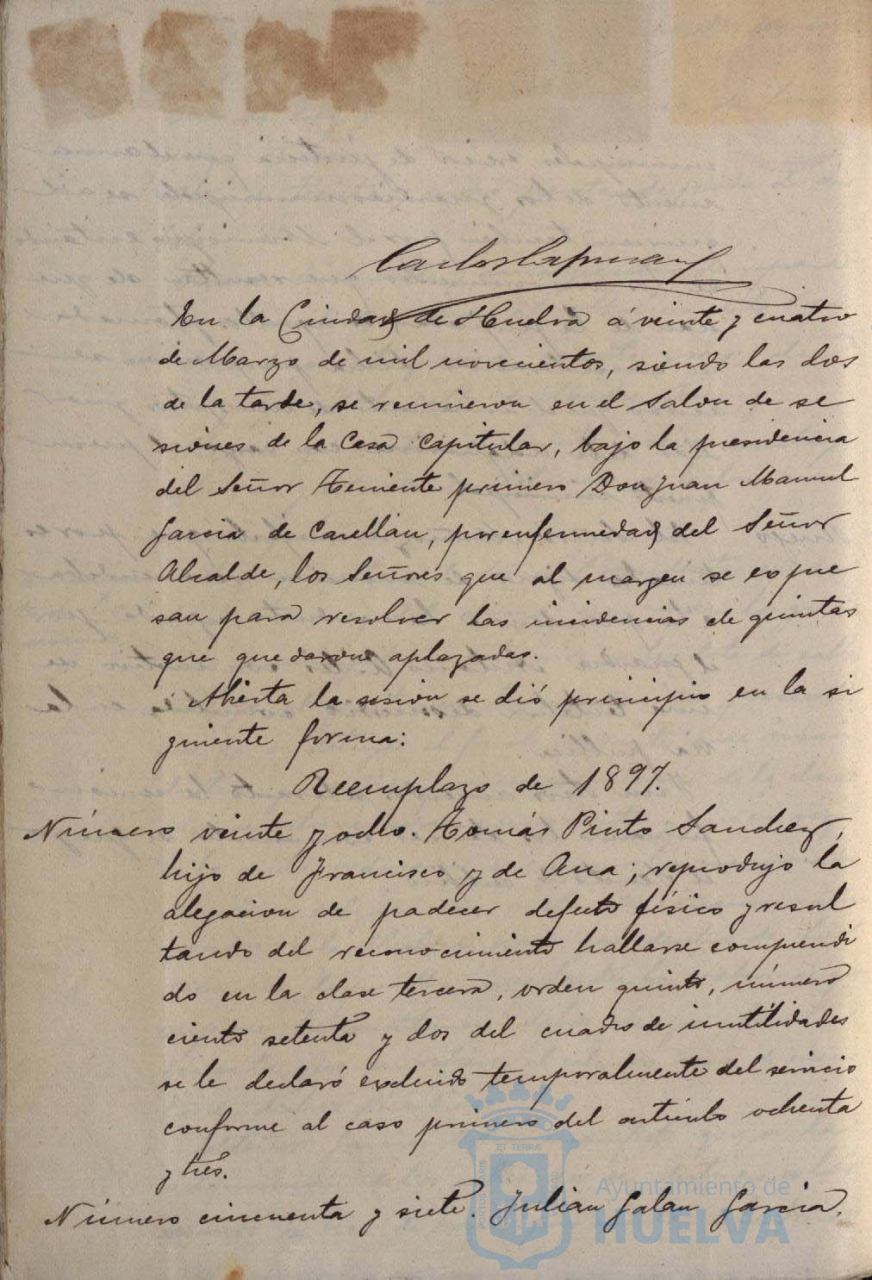 En la Ciudad de Huelva á veinte y cuatro
de Marzo de mil novecientos, siendo las dos
de la tarde, se reunieron en el Salon de se
siones de la Casa Capitular, bajo la presidencia
del Señor Teniente primero Don Juan Manuel
Garcia de Casellan, por enfermedad del Señor
Alcalde, los Señores que al margen se expre
san para resolver las incidencias de quintas
que quedaron aplazadas.
Abierta la sesion se dió principio en la si
guiente forma:
Reemplazo de 1897.
Número veinte y ocho. Tomás Pinto Sanchez,
hijo de Francisco y de Ana; reprodujo la
alegacion de padecer defecto físico y resul
tando del reconocimiento hallarse comprendi
do en la clase tercera, orden quinto, número
ciento setenta y dos del cuadro de inutilidades
se le declaró excluido temporalmente del servicio
conforme al caso primero del artículo ochenta
y tres.
Número cincuenta y siete. Julian Galan Garcia.
Ayuntamiento de
HUELVA